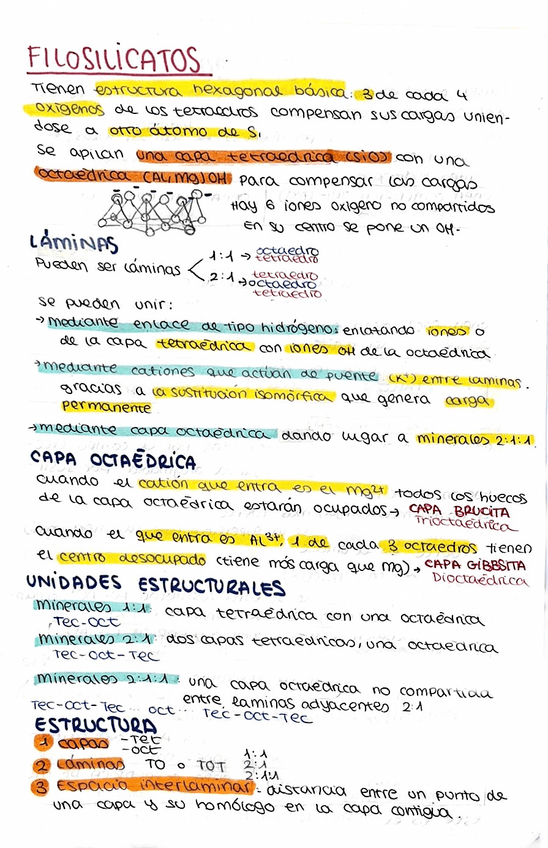 FILOSILICATOS
Tienen estructura hexagonal básica: 3 de cada 4
oxígenos de los tetraedros compensan sus cargas unien-
dose a otro átomo de Si
Se apilan una capa tetraédrica (SiO) con una
octaédrica (Al, Mg)OH para compensar las cargas
Hay 6 iones oxígeno no compartidos
En su centro se pone un OH-
LÁMINAS
Pueden ser láminas
1:1 → octaedro
tetraedro
2:1 → tetraedro
octaedro
tetraedro
Se pueden unir:
→ mediante enlace de tipo hidrógeno: enlazando iones O
de la capa tetraédrica con iones OH de la octaédrica
→ mediante cationes que actúan de puente (K+) entre láminas.
gracias a la sustitución isomórfica que genera carga
permanente
→ mediante capa octaédrica dando lugar a minerales 2:1:1.
CAPA OCTAÉDRICA
cuando el catión que entra es el Mg2+ todos los huecos
de la capa octaédrica estarán ocupados → CAPA BRUCITA
Trioctaédrica
Cuando el que entra es Al3+, 1 de cada 3 octaedros tienen
el centro desocupado (tiene más carga que Mg) → CAPA GIBBSITA
Dioctaédrica
UNIDADES ESTRUCTURALES
Minerales 1:1: capa tetraédrica con una octaédrica
Tec-Oct
Minerales 2:1: dos capas tetraédricas, una octaédrica
Tec-Oct-Tec
Minerales 2:1:1: una capa octaédrica no compartida
entre láminas adyacentes 2:1
Tec-Oct-Tec ... oct ... Tec-Oct-Tec
ESTRUCTURA
1 capas -Tet
-oct
2 Láminas TO o TOT 1:1
2:1
2:1:1
3 Espacio interlaminar: distancia entre un punto de
una capa y su homólogo en la capa contigua.